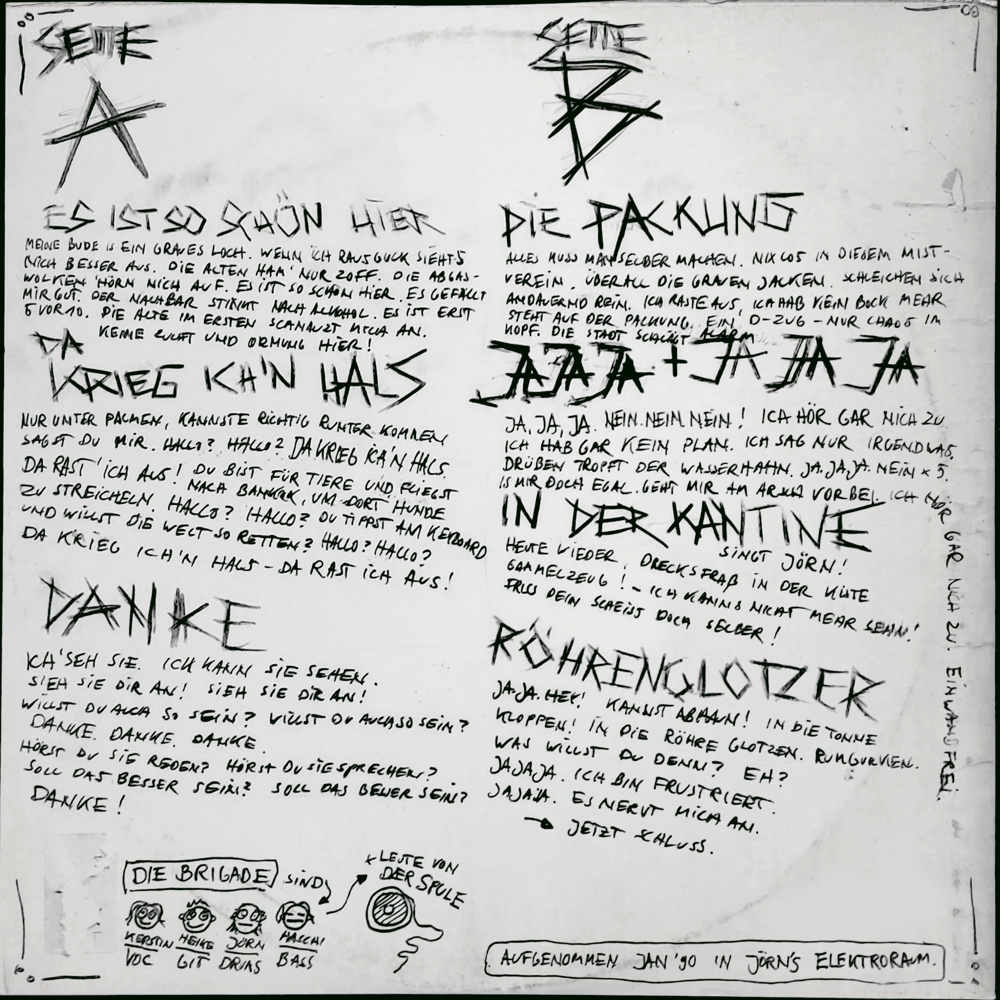 SEITE
A
ES IST SO SCHÖN HIER
MEINE BUDE IS EIN GRAUES LOCH. WENN ICH RAUSGUCK SIEHT'S
NICH BESSER AUS. DIE ALTEN HAM' NUR ZOFF. DIE ABGAS-
WOLKEN 'HÖRN NICH AUF. ES IST SO SCHÖN HIER. ES GEFÄLLT
MIR GUT. DER NACHBAR STINKT NACH ALKOHOL. ES IST ERST
5 VOR 10. DIE ALTE IM ERSTEN SCHNAUZT MICH AN.
KEINE ZUCHT UND ORDNUNG HIER!
DA
KRIEG ICH'N HALS
NUR UNTER PALMEN, KANNSTE RICHTIG RUNTER KOMMEN
SAGST DU MIR. HALLO? HALLO? DA KRIEG ICH'N HALS
DA RAST' ICH AUS! DU BIST FÜR TIERE UND FLIEGST
NACH BANGKOK, UM DORT HUNDE
ZU STREICHELN. HALLO? HALLO? DU TIPPST AM KEYBOARD
UND WILLST DIE WELT SO RETTEN? HALLO? HALLO?
DA KRIEG ICH'N HALS - DA RAST ICH AUS!
DANKE
ICH 'SEH SIE. ICH KANN SIE SEHEN.
SIEH SIE DIR AN! SIEH SIE DIR AN!
WILLST DU AUCH SO SEIN? WILLST DU AUCH SO SEIN?
DANKE. DANKE. DANKE.
HÖRST DU SIE REDEN? HÖRST DU SIE SPRECHEN?
SOLL DAS BESSER SEIN? SOLL DAS BESSER SEIN?
DANKE!
DIE BRIGADE SIND
+ LEUTE VON
DER SPULE
KERSTIN HEIKE JÖRN HASCHI
VOC GIT DRUMS BASS
SEITE
B
DIE PACKUNG
ALLES MUSS MAN SELBER MACHEN. NIX LOS IN DIESEM MIST-
VEREIN. ÜBERALL DIE GRAUEN JACKEN. SCHLEICHEN SICH
ANDAUERND REIN. ICH RASTE AUS, ICH HAB KEIN BOCK MEHR
STEHT AUF DER PACKUNG. EIN D-ZUG - NUR CHAOS IM
KOPF. DIE STADT SCHLÄGT ALARM
JAJAJA + JA JA JA
JA, JA, JA. NEIN. NEIN. NEIN! ICH HÖR GAR NICH ZU.
ICH HAB GAR KEIN PLAN. ICH SAG NUR IRGENDWAS.
DRÜBEN TROPFT DER WASSERHAHN. JA. JA, JA. NEIN x 5.
IS MIR DOCH EGAL. GEHT MIR AM ARSCH VORBEI. ICH HÖR GAR NICH ZU. EINWANDFREI.
IN DER KANTINE
SINGT JÖRN!
HEUTE WIEDER, DRECKSFRAß IN DER KÜTE
GAMMELZEUG! - ICH KANNS NICHT MEHR SEHN!
FRISS DEIN SCHEISS DOCH SELBER!
RÖHRENGLOTZER
JA. JA. HEY! KANNST ABHAUN! IN DIE TONNE
KLOPPEN! IN DIE RÖHRE GLOTZEN. RUMGURKEN.
WAS WILLST DU DENN? EH?
JAJAJA. ICH BIN FRUSTRIERT.
JAJAJA. ES NERVT MICH AN.
→ JETZT SCHLUSS.
AUFGENOMMEN JAN '90 IN JÖRN'S ELEKTRORAUM.